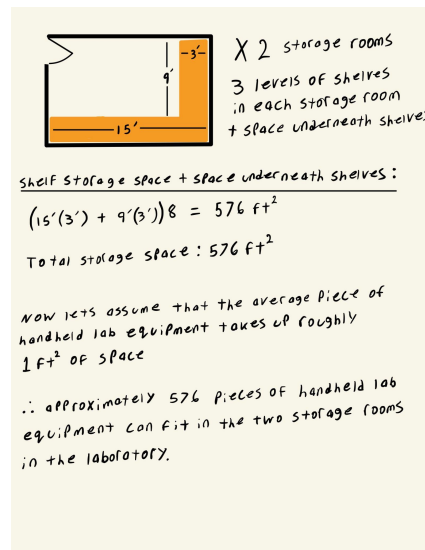 3'
9'
15'
X 2 storage rooms
3 levels of shelves
in each storage room
+ space underneath shelves
Shelf storage space + space underneath shelves:
(15'(3') + 9'(3'))8 = 576 ft²
Total storage space: 576 ft²
Now lets assume that the average piece of
handheld lab equipment takes up roughly
1 ft² of space
∴ approximately 576 pieces of handheld lab
equipment can fit in the two storage rooms
in the laboratory.